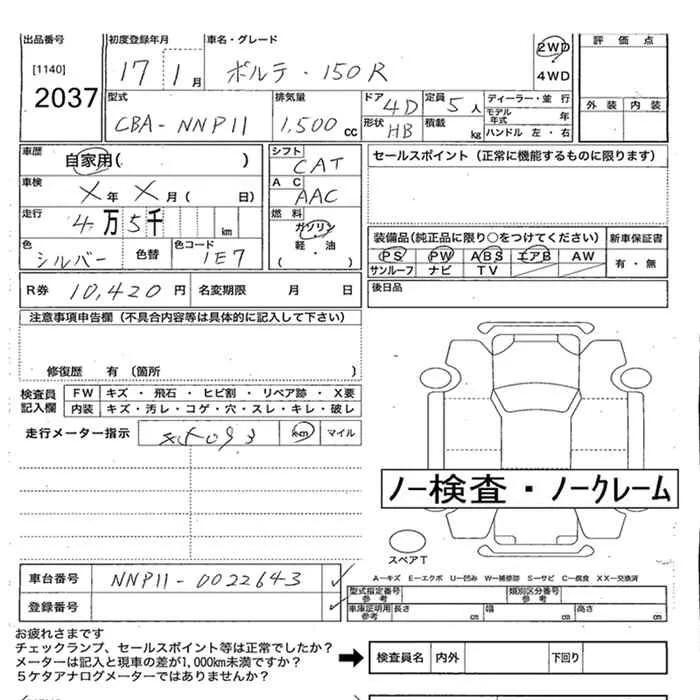 出品番号 初度登録年月 車名・グレード 2WD 評価点
[1140] 17 1月 ポルテ・150R 4WD
2037 型式 排気量 ドア 4D 定員 5人 ディーラー・並行 外装 内装
CBA-NNP11 1,500cc 形状 HB 積載 kg モデル年式 年
ハンドル 左・右
車歴 自家用( ) シフト CAT セールスポイント (正常に機能するものに限ります)
車検 X年 X月( 日) AC AAC
走行 4万5千 km 燃料 ガソリン
軽・油
( ・ )
装備品(純正品に限り○をつけてください) 新車保証書
色 シルバー 色替 色コード 1E7 PS PW ABS エアB AW 有・無
サンルーフ ナビ TV
R券 10,420円 名変期限 月 日 後日品
注意事項申告欄 (不具合内容等は具体的に記入して下さい)
修復歴 有 (箇所 )
検査員記入欄 FW キズ・飛石・ヒビ割・リペア跡・X要
内装 キズ・汚レ・コゲ・穴・スレ・キレ・破レ
走行メーター指示 km マイル
ノー検査・ノークレーム
スペアT
A－キズ E－エクボ U－凹み W－補修跡 S－サビ C－腐食 XX－交換済
車台番号 NNP11-0022643 型式指定番号 参考 類別区分番号 参考
登録番号 車庫証明用 参考 長さ cm 幅 cm 高さ cm
お疲れさまです
チェックランプ、セールスポイント等は正常でしたか?
メーターは記入と現車の差が1,000km未満ですか?
5ケタアナログメーターではありませんか?
検査員名 内外 下回り